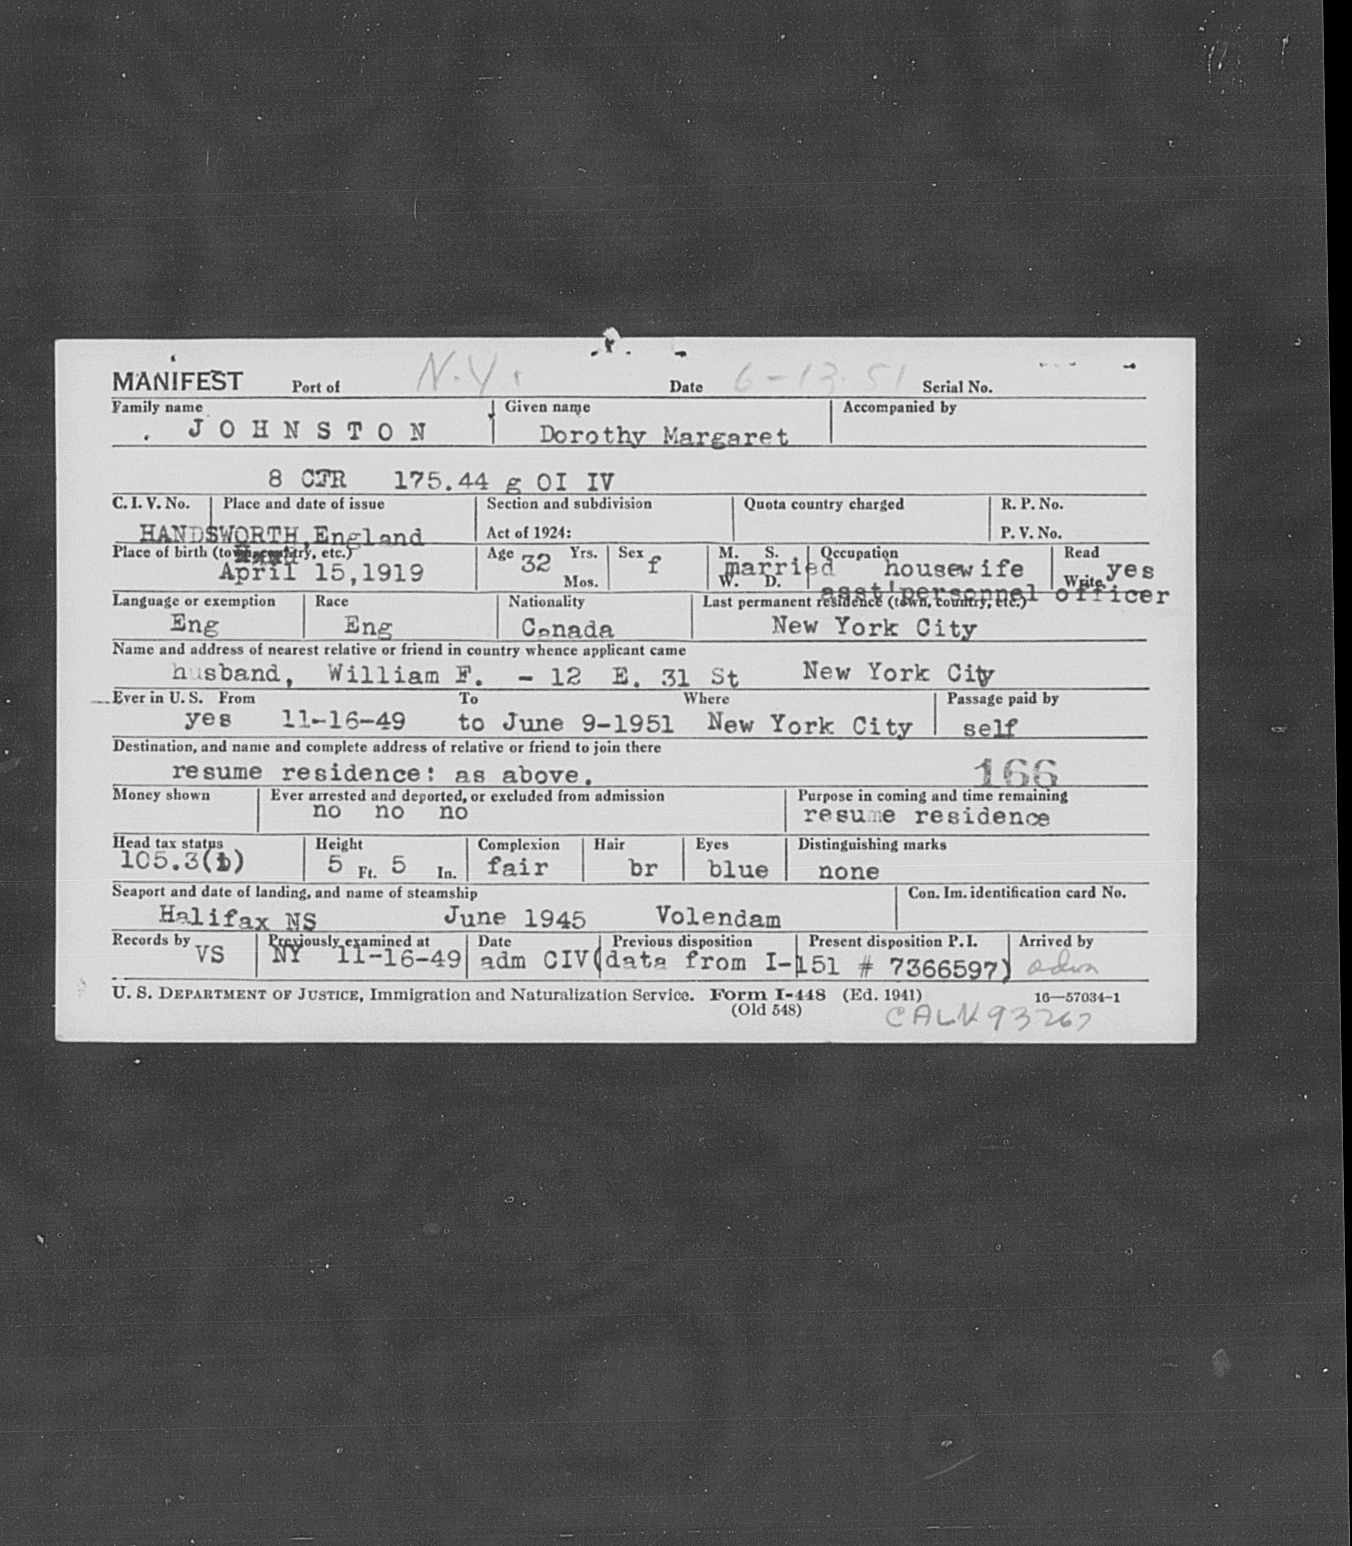 MANIFEST Port of N.Y. Date 6-13-51 Serial No.
Family name Given name Accompanied by
JOHNSTON Dorothy Margaret
8 CFR 175.44 g OI IV
C. I. V. No. Place and date of issue Section and subdivision Quota country charged R. P. No.
HANDSWORTH, England Act of 1924: P. V. No.
Place of birth (town, country, etc.) Age 32 Yrs. Sex f M. S. Occupation Read
April 15,1919 Mos. W. D. married housewife Write yes
asst personnel officer
Language or exemption Race Nationality Last permanent residence (town, country, etc.)
Eng Eng Canada New York City
Name and address of nearest relative or friend in country whence applicant came
husband, William F. - 12 E. 31 St New York City
Ever in U. S. From To Where Passage paid by
yes 11-16-49 to June 9-1951 New York City self
Destination, and name and complete address of relative or friend to join there
resume residence: as above. 166
Money shown Ever arrested and deported, or excluded from admission Purpose in coming and time remaining
no no no resume residence
Head tax status Height Complexion Hair Eyes Distinguishing marks
105.3(b) 5 Ft. 5 In. fair br blue none
Seaport and date of landing, and name of steamship Con. Im. identification card No.
Halifax NS June 1945 Volendam
Records by Previously examined at Date Previous disposition Present disposition P. I. Arrived by
VS NY 11-16-49 adm CIV (data from I-151 # 7366597)
U. S. DEPARTMENT OF JUSTICE, Immigration and Naturalization Service. Form I-448 (Ed. 1941) 16—57034-1
(Old 548) CALN 93267